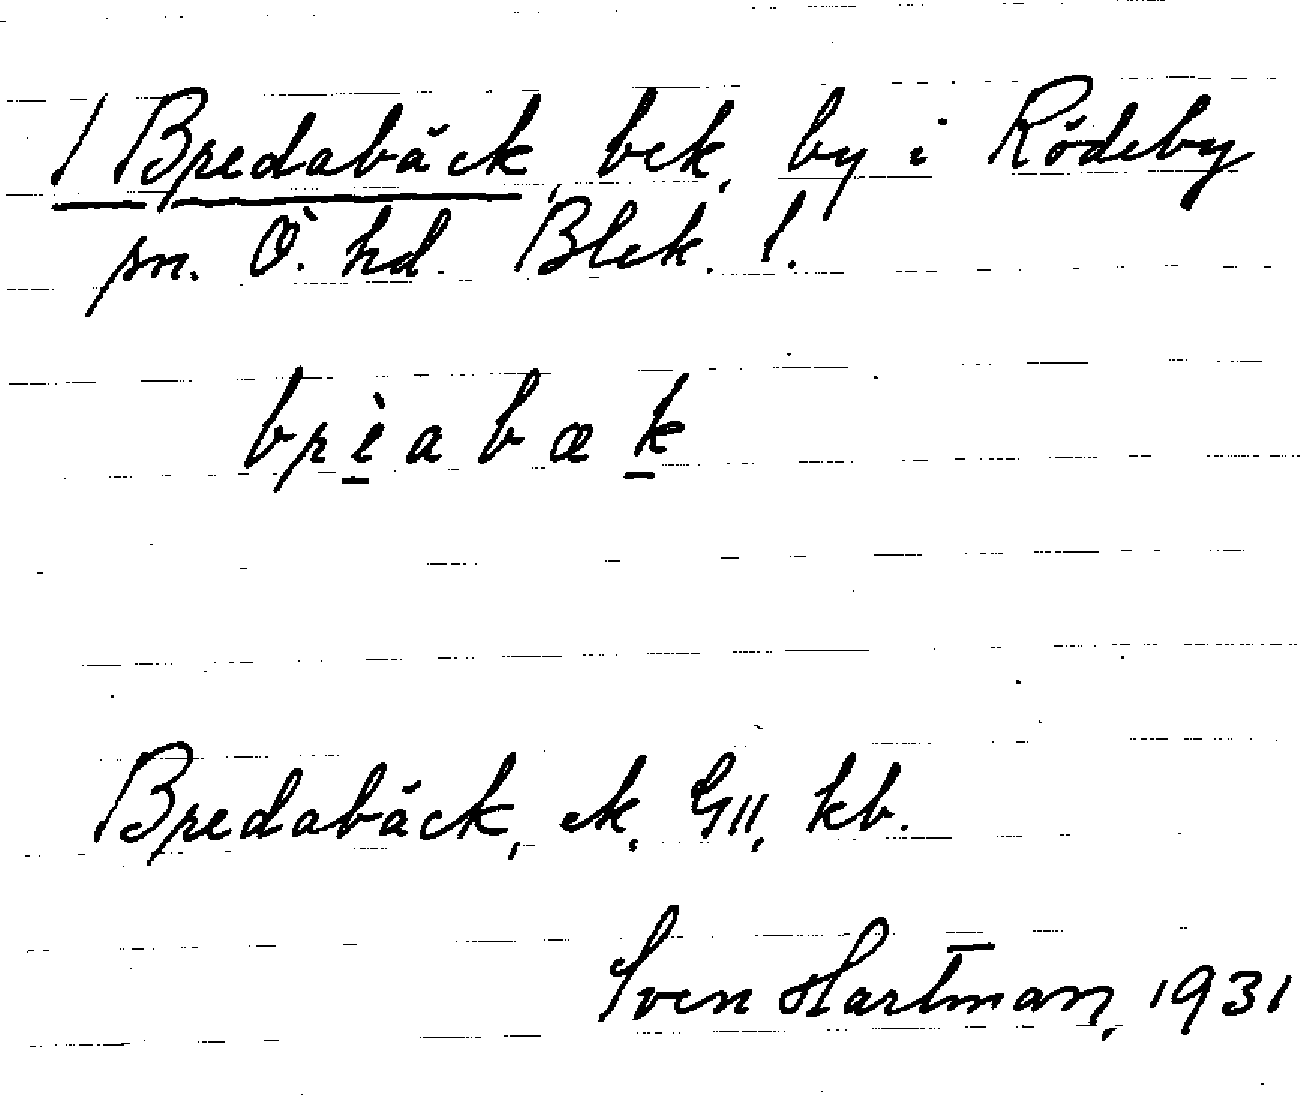 1 Bredabäck, bek, by i Rödeby
sn. Ö. hd. Blek. l.
brèabæk
Bredabäck, ek, GII, kb.
Sven Hartman, 1931